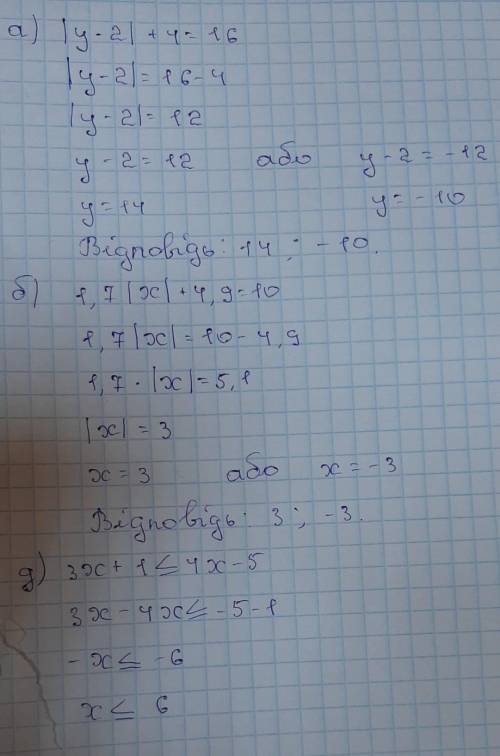 а) |y-2| + 4 = 16
|y-2| = 16-4
|y-2| = 12
y-2 = 12 або y-2 = -12
y = 14 y = -10
Відповідь: 14 ; -10.
б) 1,7|x| + 4,9 = 10
1,7|x| = 10 - 4,9
1,7 · |x| = 5,1
|x| = 3
x = 3 або x = -3
Відповідь: 3 ; -3.
д) 3x + 1 ≤ 4x - 5
3x - 4x ≤ -5 - 1
-x ≤ -6
x ≤ 6